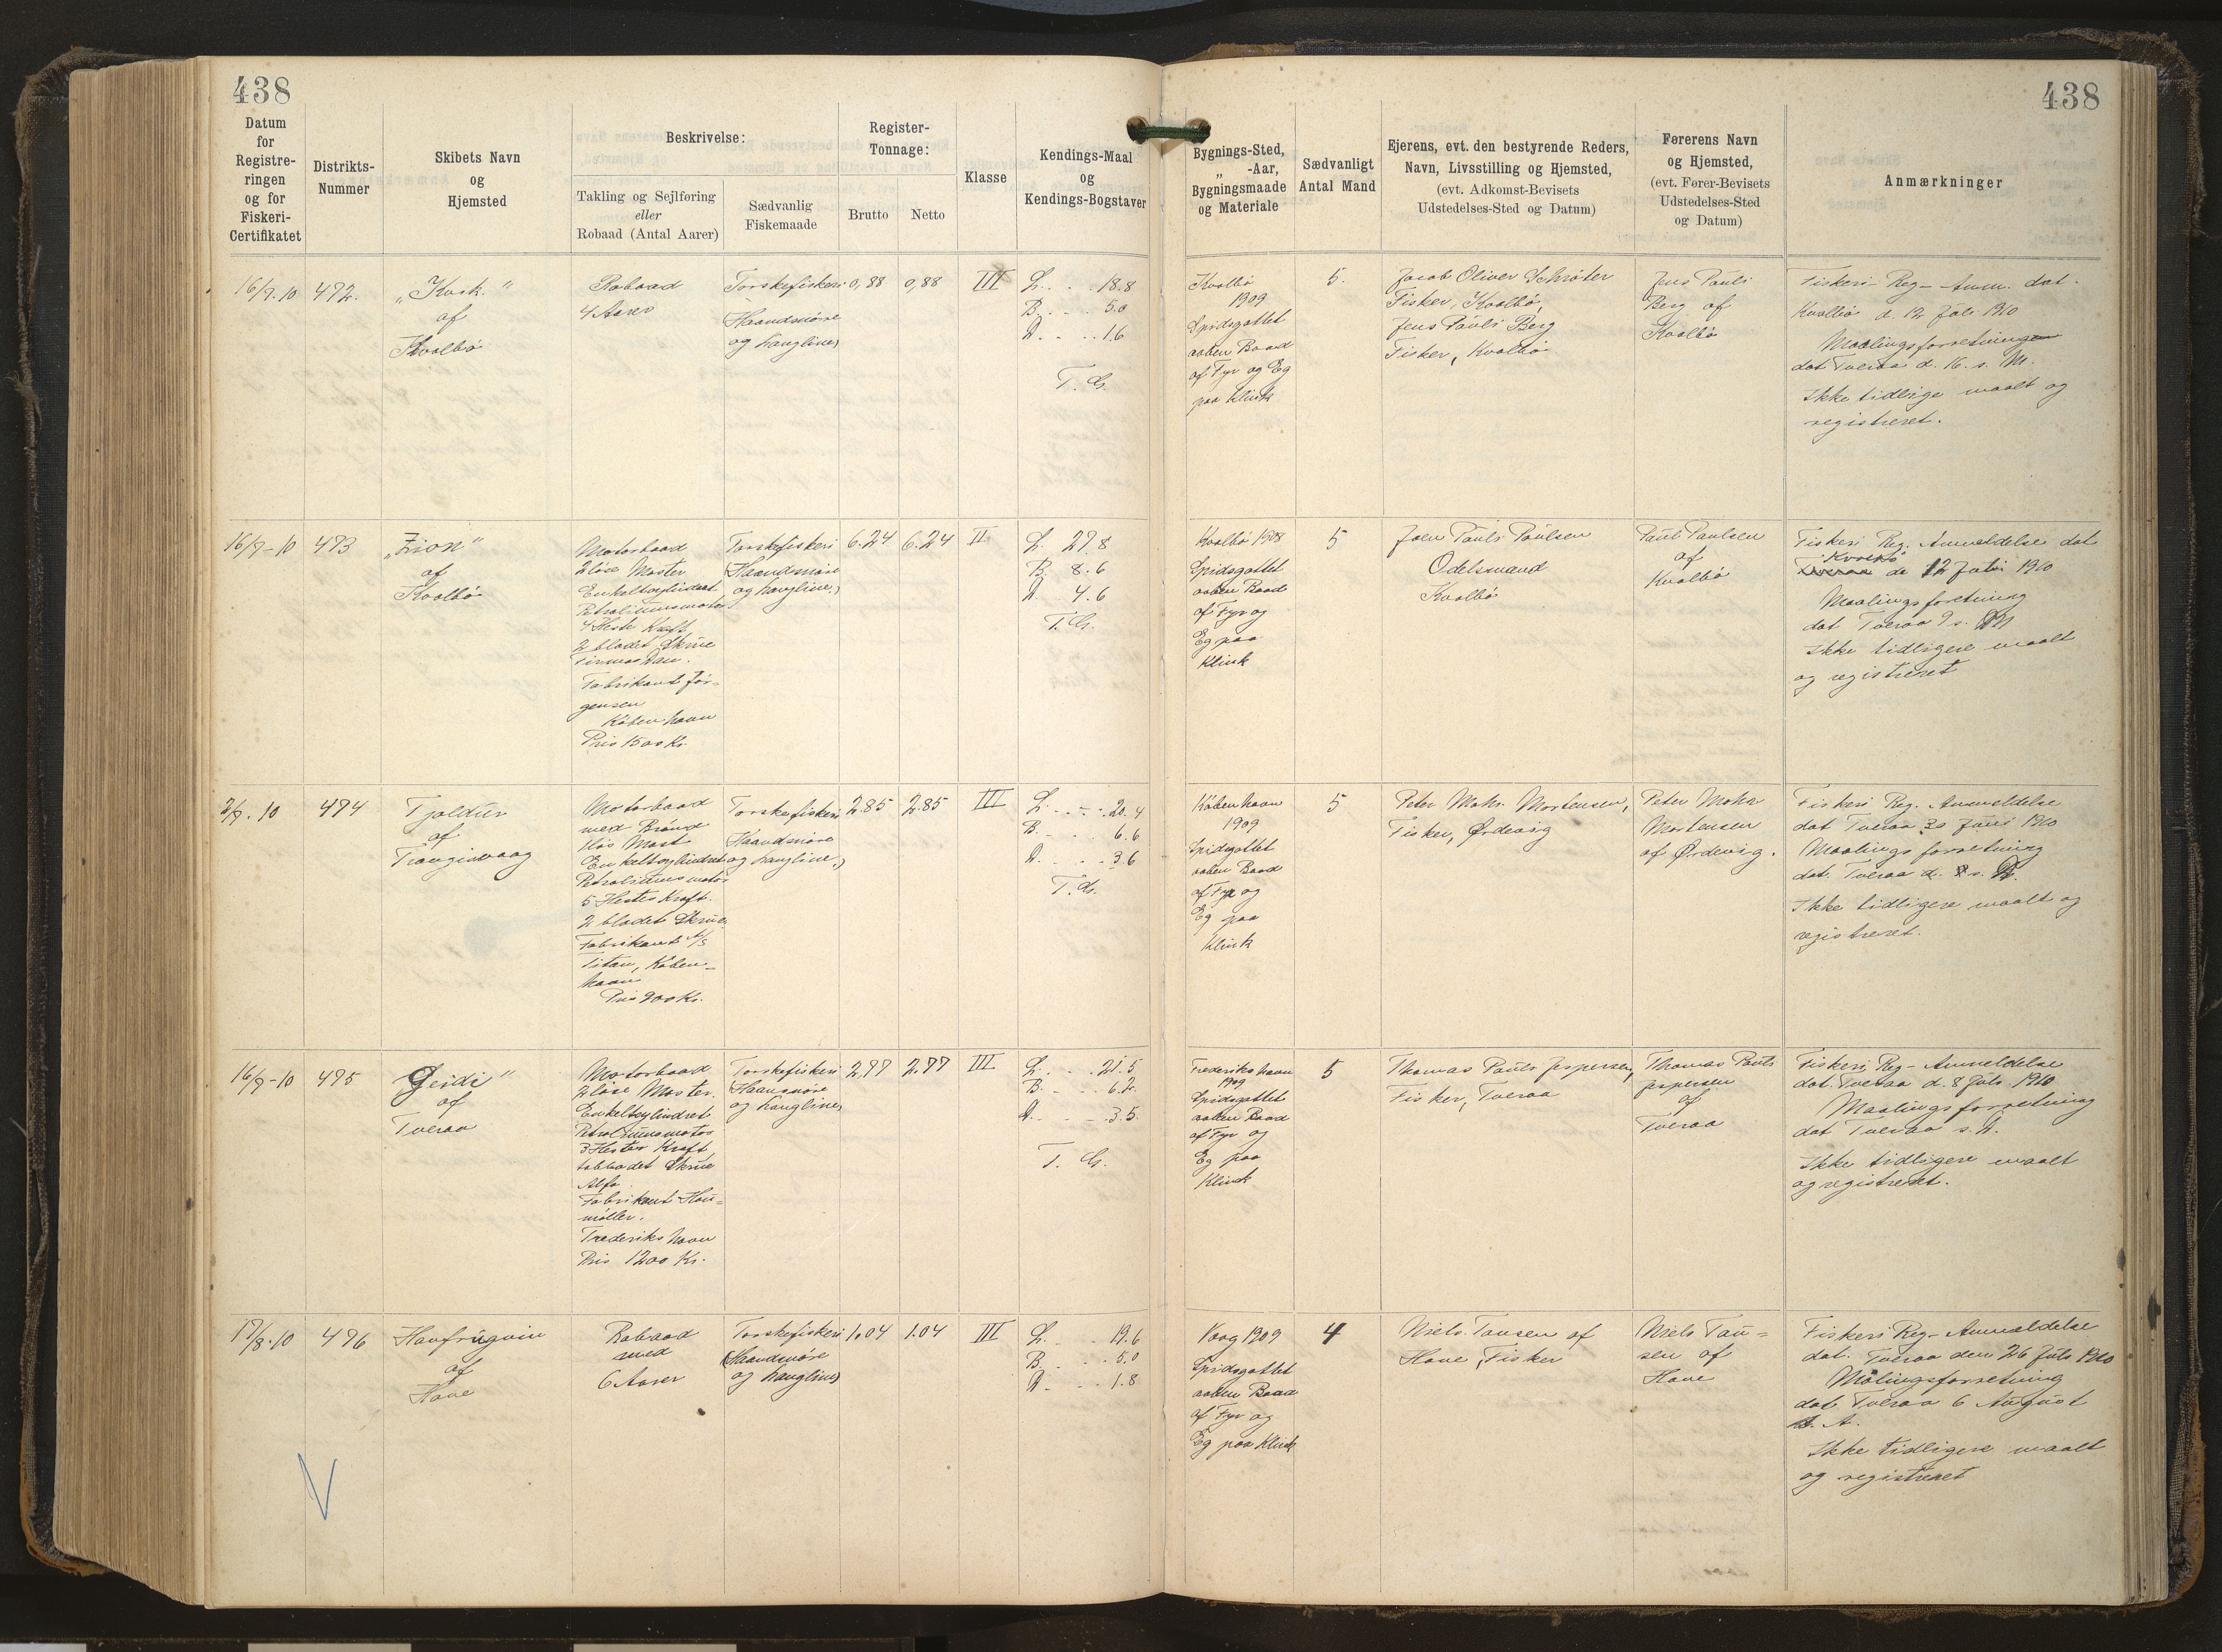 438
438
Datum
for
Registre-
ringen
og for
Fiskeri-
Certifikatet
Distrikts-
Nummer
Skibets Navn
og
Hjemsted
Beskrivelse:
Takling og Sejlføring
eller
Robaad (Antal Aarer)
Sædvanlig
Fiskemaade
Register-
Tonnage:
Brutto
Netto
Klasse
Kendings-Maal
og
Kendings-Bogstaver
Bygnings-Sted,
„ -Aar,
Bygningsmaade
og Materiale
Sædvanligt
Antal Mand
Ejerens, evt. den bestyrende Reders,
Navn, Livsstilling og Hjemsted,
(evt. Adkomst-Bevisets
Udstedelses-Sted og Datum)
Førerens Navn
og Hjemsted,
(evt. Fører-Bevisets
Udstedelses-Sted
og Datum)
Anmærkninger
16/7.10
492.
af
Kvalbø
Robaad
4 Aarer
Torskefiskeri
(Haandsnøre
og Langline)
0,88
0,88
III
L. . . 18.8
B. . . 5.0
D. . . 1.6
T. G.
Kvalbø
1909
Spidsgattet
aaben Baad
af Fyr og Eg
paa Klink
5.
Jacob Oliver Schrøter
Fisker, Kvalbø,
Jens Pauli Berg
Fisker, Kvalbø
Jens Pauli
Berg af
Kvalbø
Fiskeri-Reg-Anm. dat.
Kvalbø d. 12 Juli 1910
Maalingsforretning
dat Tveraa d. 16. s. M.
Ikke tidlige maalt og
registreret.
16/7-10
493
„Zion"
af
Kvalbø
Motorbaad
2 løse Master
Enkeltcylindret
Petroliumsmotor
4 Heste Kraft
2 bladet Skrue
Firma Dan.
Fabrikant Jør-
gensen
København
Pris 1500 Kr.
Torskefiskeri
(Haandsnøre
og Langline)
6.24
6.24
II
L. 27.8
B. 8.6
D. 4.6
T. G.
Kvalbø 1908
Spidsgattet
aaben Baad
af Fyr og
Eg paa
Klink
5
Joen Pauli Poulsen
Odelsmand
Kvalbø
Pauli Paulsen
af
Kvalbø
Fiskeri Reg. Anmeldelse dat
Kvalbø
Tveraa de 12 Juli 1910
Maalingsforetning
dat Tveraa 9 s. M
Ikke tidligere maalt
og registreret
2/7.10
494
Tjaldur
af
Trangisvaag
Motorbaad
med Brønd
1 løs Mast
Enkeltcylindret
Petroliumsmotor
5 Hestes Kraft.
2 bladet Skrue
Fabrikant A/S
Titan, Køben-
havn
Pris 900 Kr.
Torskefiskeri
(Haandsnøre
og Langline.)
2.85
2.85
III
L. . . . 20.4
B. . . . 6.6
D. . . . 3.6
T. G.
København
1909
Spidsgattet
aaben Baad
af Fyr og
Eg paa
Klink
5
Peter Mohr Mortensen,
Fisker, Ørdevig
Peter Mohr
Mortensen
af Ørdevig.
Fiskeri Reg. Anmeldelse
dat Tveraa 30 Juni 1910
Maalingsforretning
dat. Tveraa d.
Ikke tidligere maalt og
registreret.
16/7-10
495
Geidi"
af
Tveraa
Motorbaad
2 løse Master.
Enkeltcylindret
Petroliumsmotor
3 Hestes Kraft
tobladet Skrue
Alfa.
Fabrikant Hou-
møller.
Frederikshavn
Pris 1200 Kr.
Torskefiskeri
(Haansnøre
og Langline)
2,77
2.77
III
L. . . . 21.5
B. . . . 6.2
D. . . . 3.5
T. G.
Frederikshavn
1909
Spidsgattet
aaben Baad
af Fyr og
Eg paa
Klink
5
Thomas Pauli Jespersen,
Fisker, Tveraa
Thomas Pauli
Jespersen
af
Tveraa
Fiskeri Reg-Anmeldelse
dat. Tveraa d. 8 Juli 1910
Maalingsforretning
dat Tveraa
Ikke tidligere maalt
og registreret.
17/8.10
496
Havfrugvin
af
Hove
Robaad
med
6 Aarer
Torskefiskeri
(Haandsnøre
og Langline)
1.04
1.04
III
L. . . . 19.6
B. . . . 5.0
D. . . . 1.8
Vaag 1909
Spidsgattet
aaben Baad
af Fyr og
Eg paa Klink
4
Niels Tausen af
Hove, Fisker
Niels Tau-
sen af
Hove
Fiskeri Reg-Anmeldelse
dat. Tveraa den 26 Juli 1910
Målingsforretning
dat Tveraa 6 August
Ikke tidligere maalt
og registreret